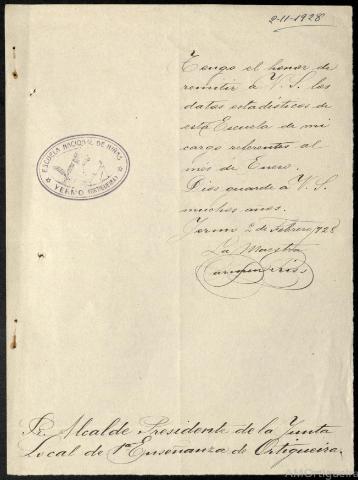 2-11-1928
Tengo el honor de
remitir á V. S. los
datos estadísticos de
esta Escuela de mi
cargo referentes al
mes de Enero.
Dios guarde á V. S.
muchos anos.
Yermo 2 de Febrero 928
La Maestra
Carmen
ESCUELA NACIONAL DE NIÑAS
YERMO (ORTIGUEIRA)
Sr. Alcalde Presidente de la Junta
Local de 1ª Enseñanza de Ortigueira.
AMOrtigueira